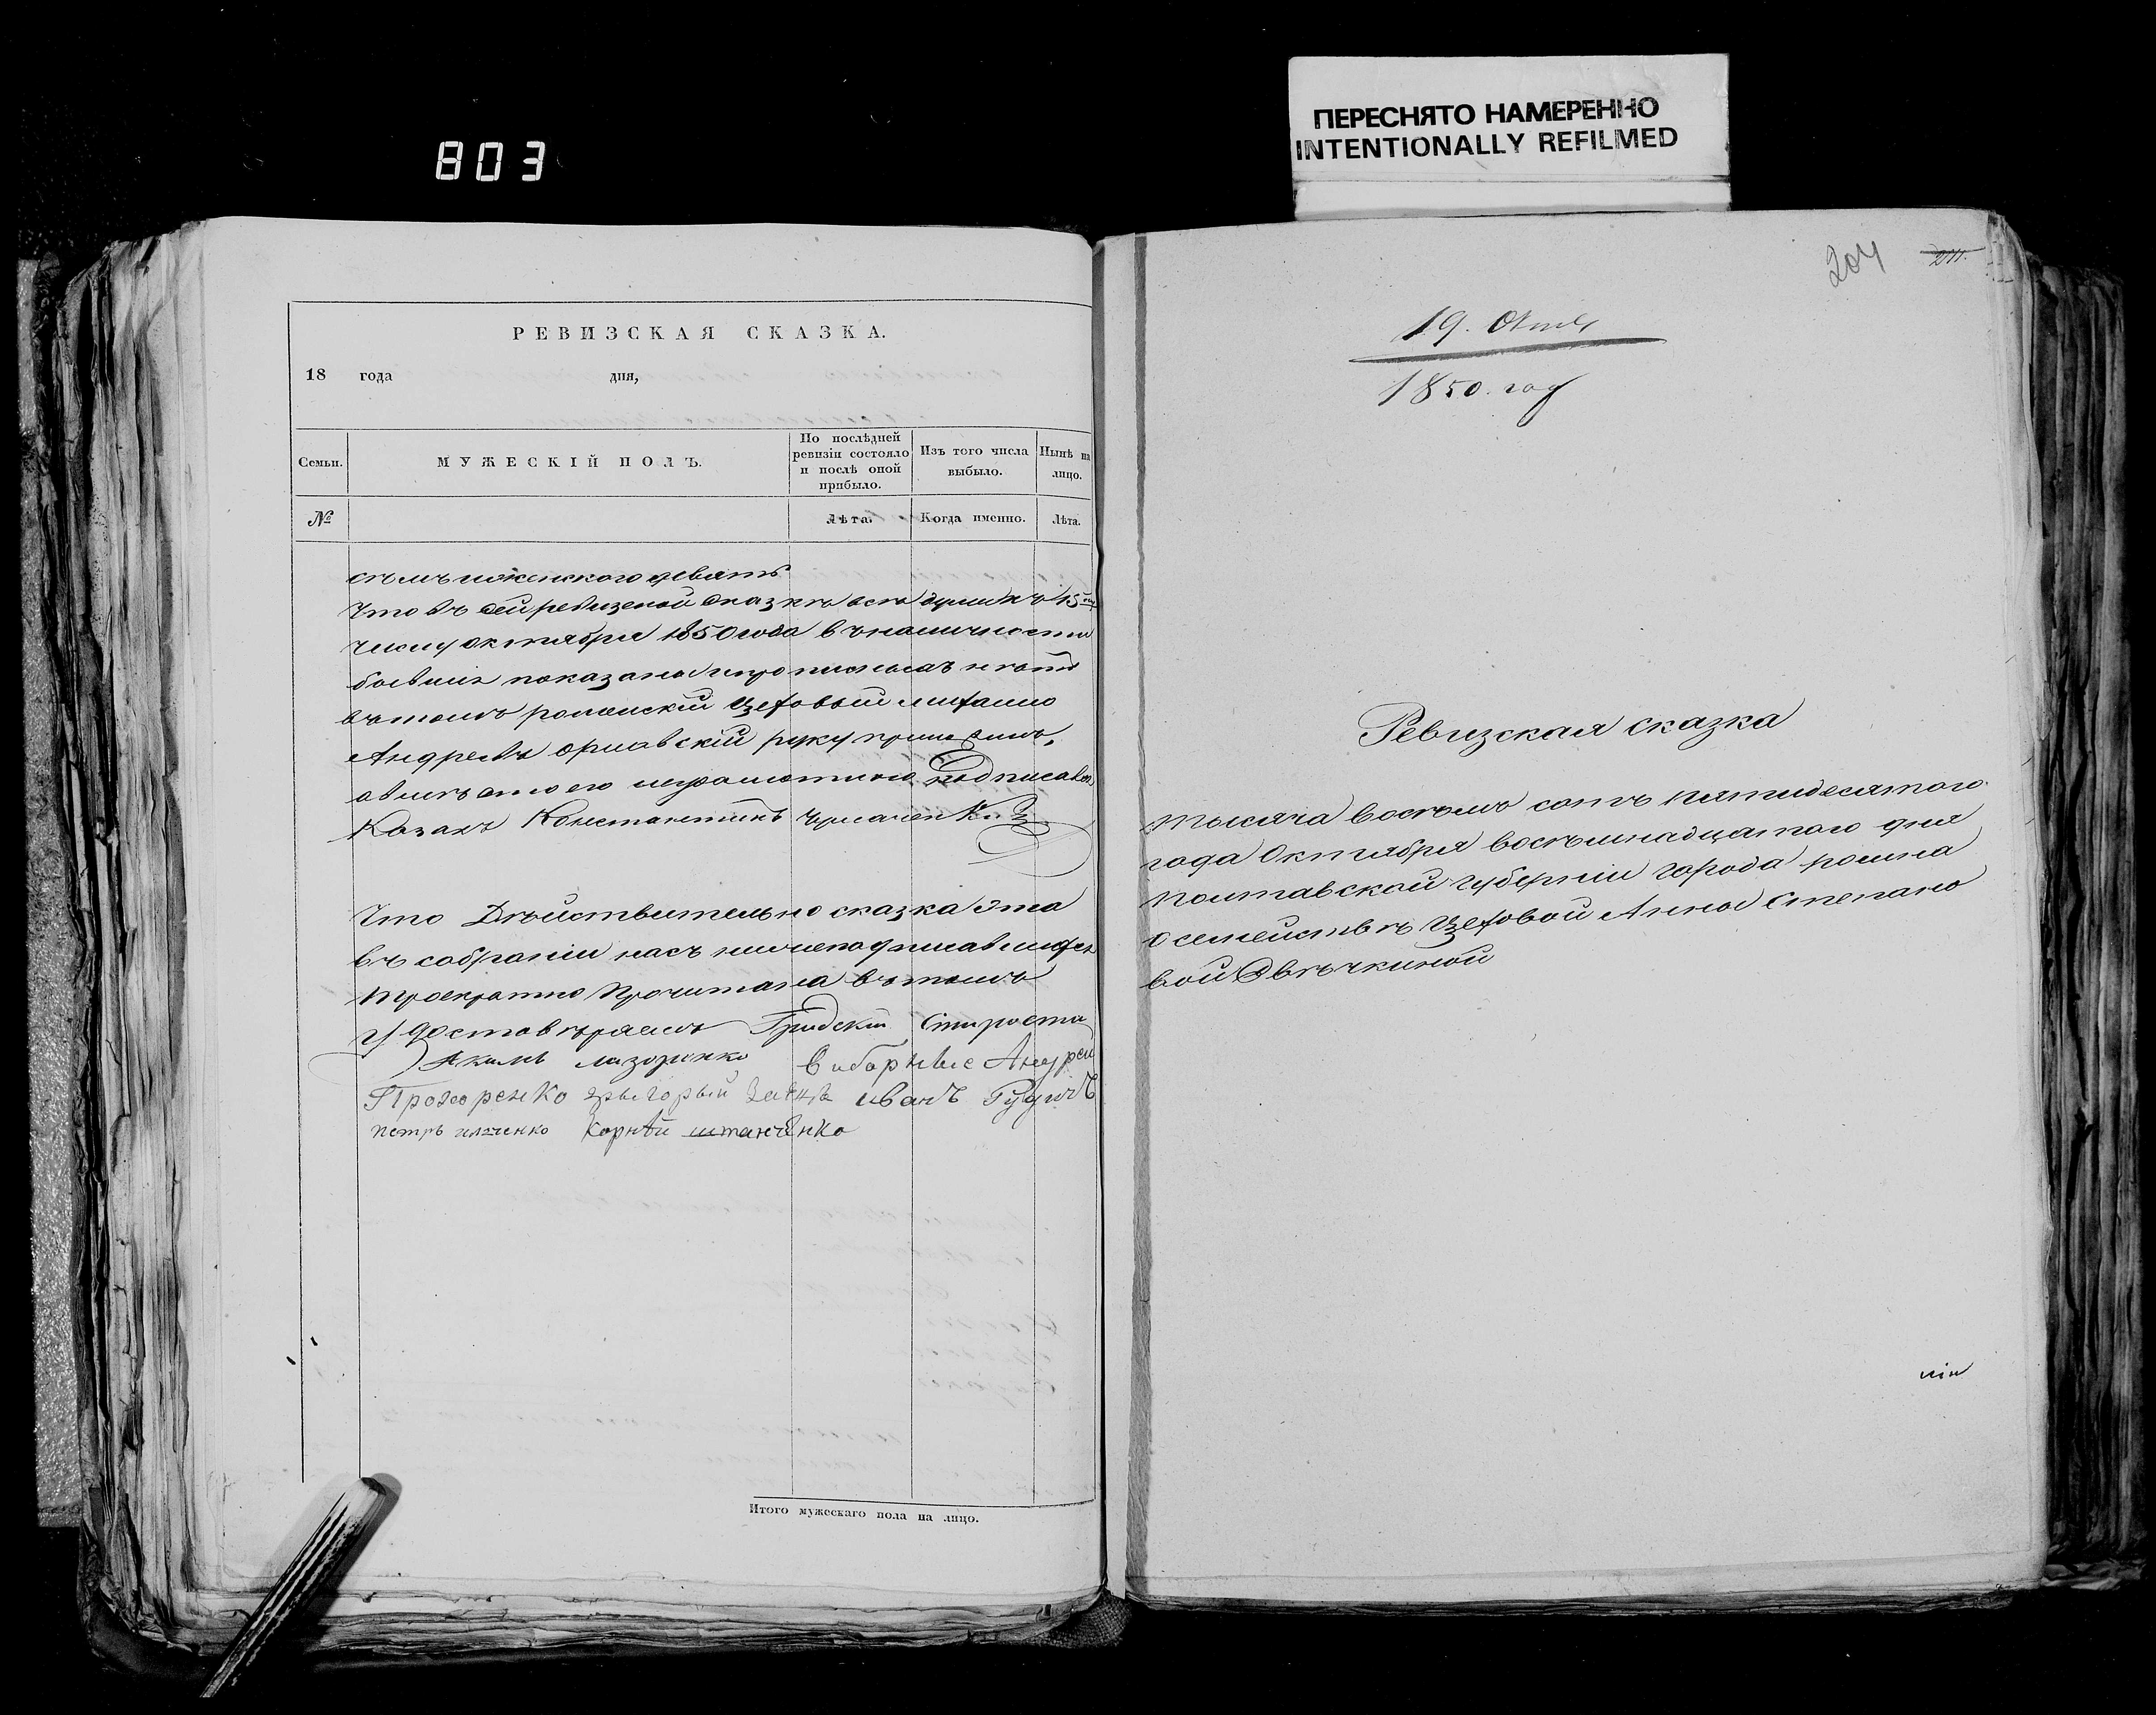 803
ПЕРЕСНЯТО НАМЕРЕННО
INTENTIONALLY REFILMED
РЕВИЗСКАЯ СКАЗКА.
18 года дня,
Семьи.
МУЖЕСКІЙ ПОЛЪ.
По послѣдней ревизіи состояло и послѣ оной прибыло.
Изъ того числа выбыло.
Нынѣ на лицо.
№
Лѣта.
Когда именно.
Лѣта.
девять
Что въ сей ревизской сказке всѣ души къ 15му
числу октября 1850 года въ наличности
бывшіе показаны и прописныхъ нетъ
въ томъ роменскій цеховый
Андреевъ руку приложилъ,
а вместо его неграмотного подписался
Козакъ Константинъ
Что Действительно сказка эта
въ собраніи насъ нижеподписавшихся
троекратно прочитана въ томъ
удостоверяемъ Градскій Староста
Якимъ лазоренко выборные Андрей
Прохоренко грыгорый Заецъ иванъ
петръ Корнѣй
Итого мужескаго пола на лицо.
204
211.
19. Октяб
1850. год
Ревизская сказка
тысяча восемь сотъ пятидесятого
года Октября восемнадцатого дня
полтавской губерніи города ромна
О семействе цеховой Анны Степано
вой Овечкиной